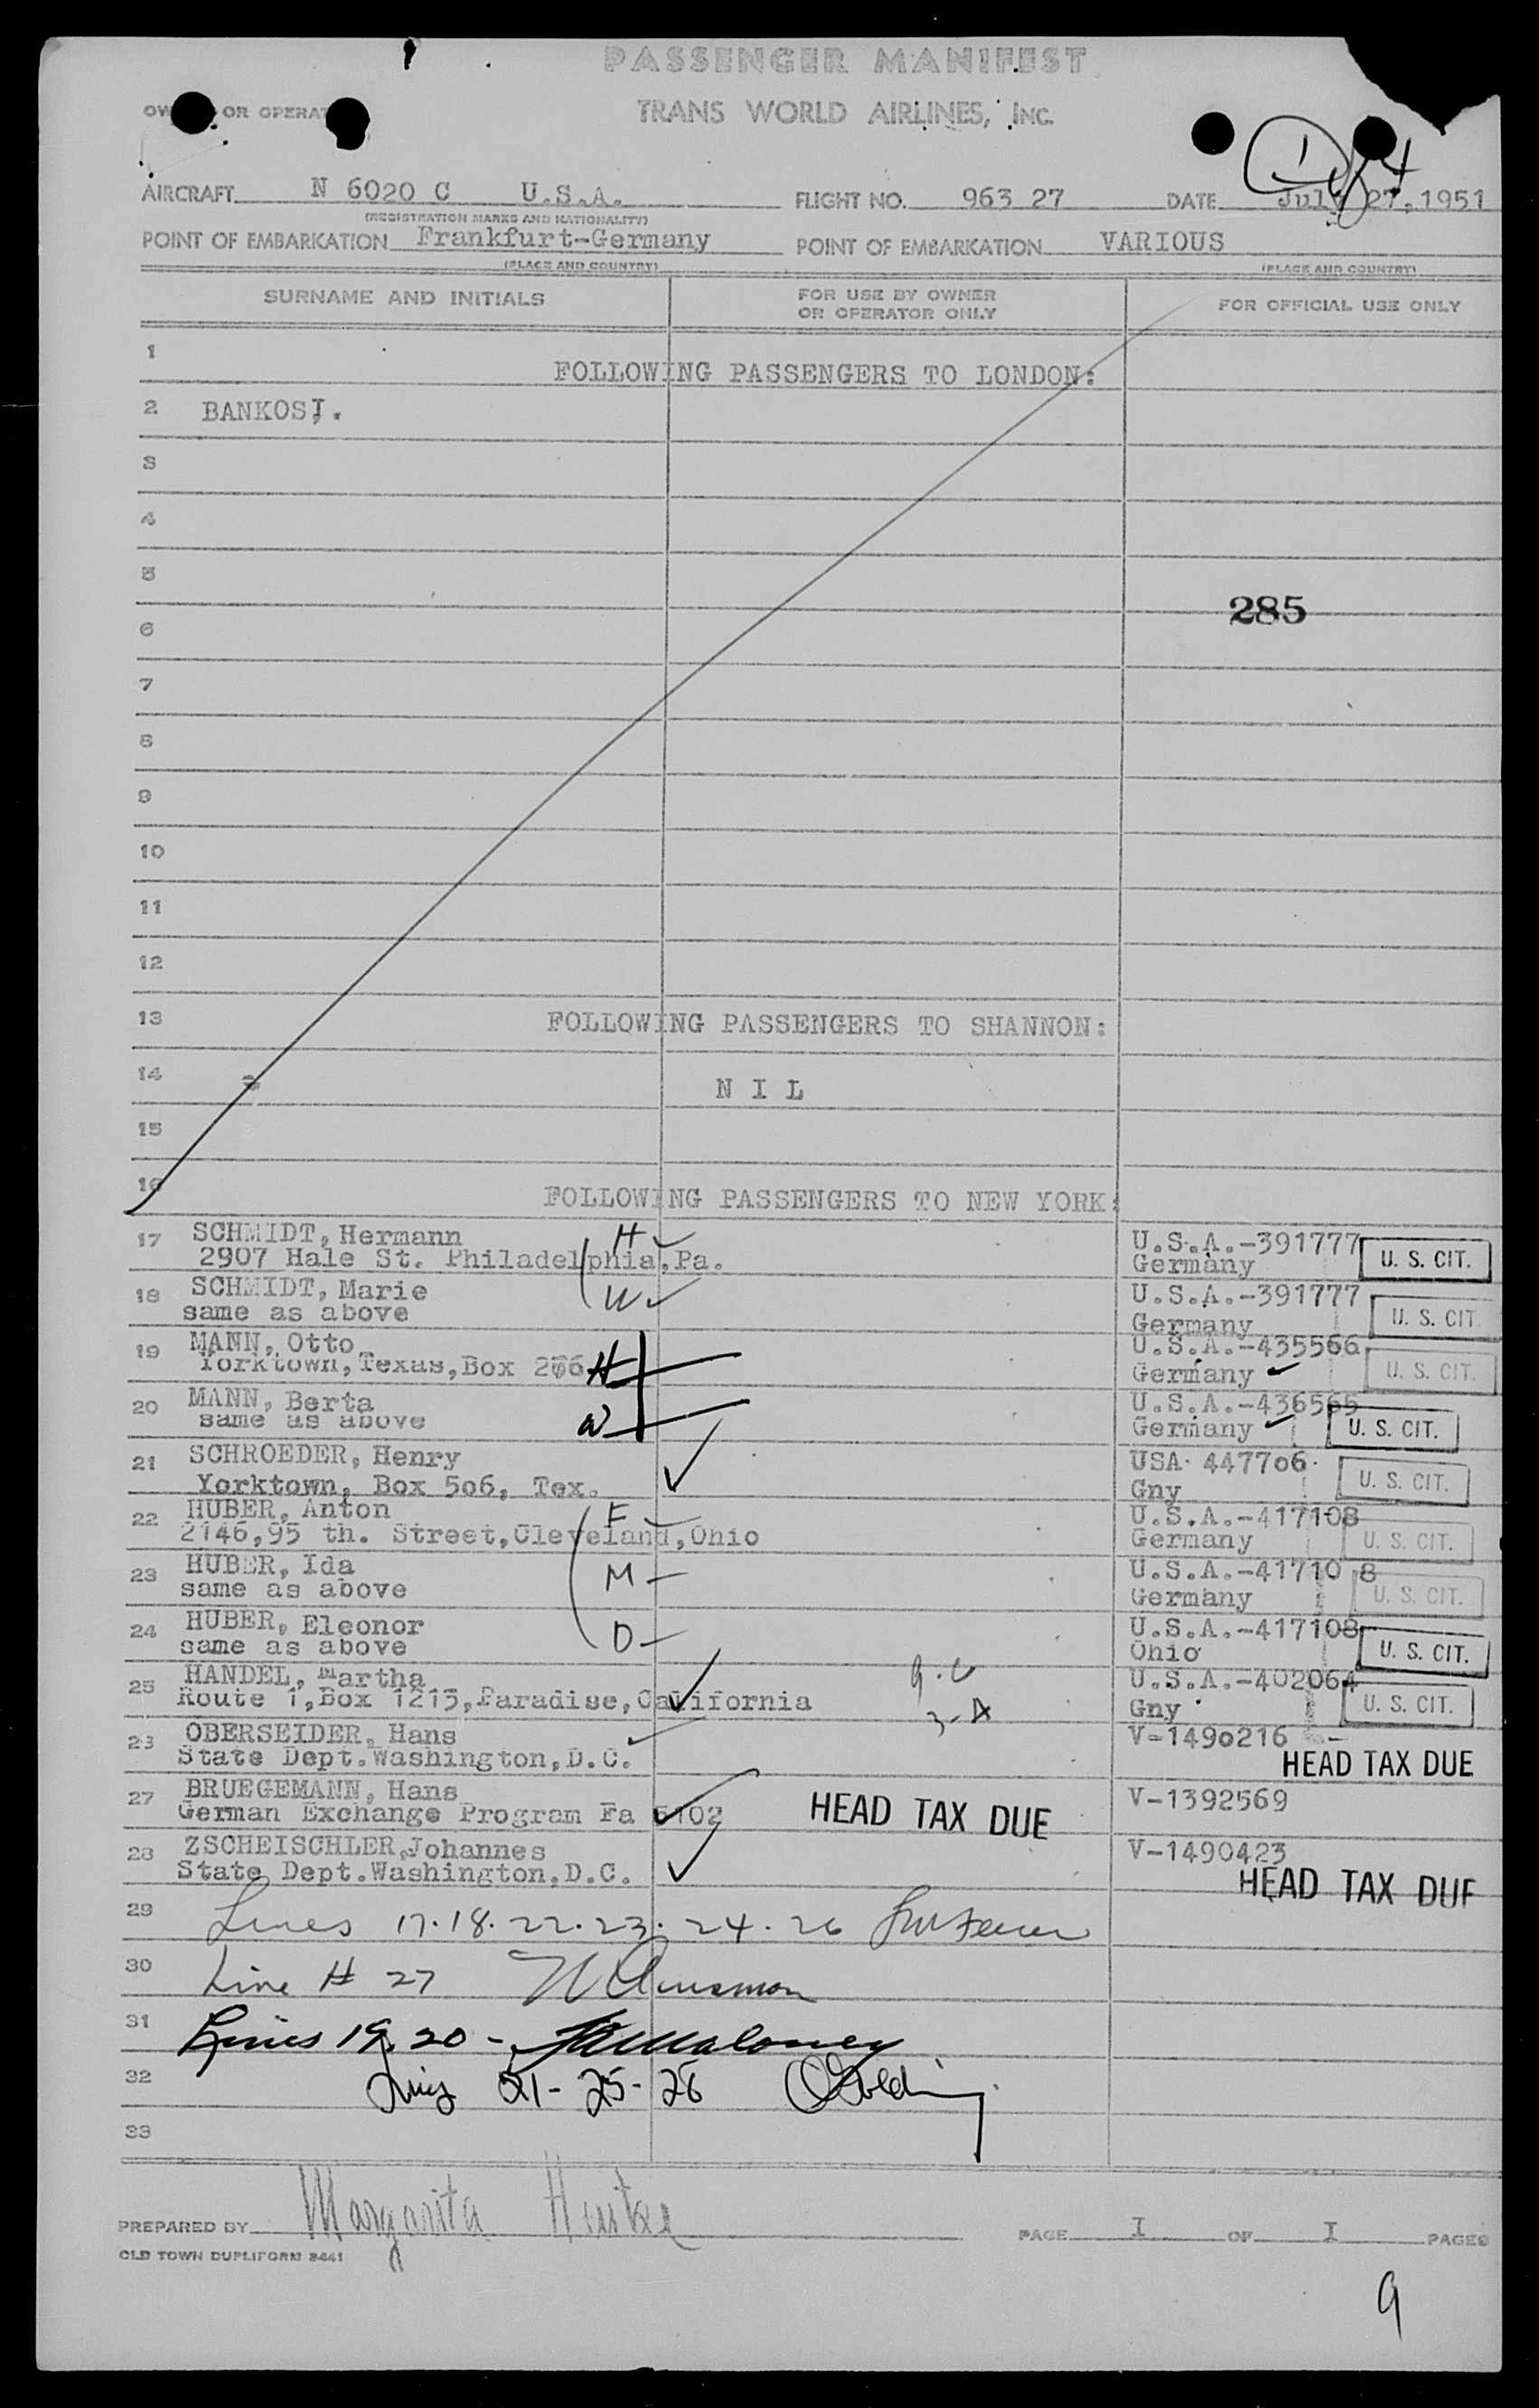 PASSENGER MANIFEST
TRANS WORLD AIRLINES, INC.
OR OPERAT
Dept
AIRCRAFT N 6020 C U.S.A. FLIGHT NO. 963 27 DATE July 27, 1951
(REGISTRATION MARKS AND NATIONALITY)
POINT OF EMBARKATION Frankfurt-Germany POINT OF EMBARKATION VARIOUS
(PLACE AND COUNTRY) (PLACE AND COUNTRY)
SURNAME AND INITIALS FOR USE BY OWNER OR OPERATOR ONLY FOR OFFICIAL USE ONLY
1 FOLLOWING PASSENGERS TO LONDON:
2 BANKOS, I.
3
4
5
285
6
7
8
9
10
11
12
13 FOLLOWING PASSENGERS TO SHANNON:
14 N I L
15
16 FOLLOWING PASSENGERS TO NEW YORK:
17 SCHMIDT, Hermann H U.S.A.-391777
2907 Hale St. Philadelphia,Pa. Germany U. S. CIT.
18 SCHMIDT, Marie W U.S.A.-391777
same as above Germany U. S. CIT.
19 MANN, Otto U.S.A.-435566
Yorktown,Texas,Box 206 H Germany U. S. CIT.
20 MANN, Berta U.S.A.-436565
same as above W Germany U. S. CIT.
21 SCHROEDER, Henry USA. 447706.
Yorktown, Box 506, Tex. Gny U. S. CIT.
22 HUBER, Anton F U.S.A.-417108
2146,95 th. Street,Cleveland,Ohio Germany U. S. CIT.
23 HUBER, Ida M U.S.A.-41710 8
same as above Germany U. S. CIT.
24 HUBER, Eleonor D U.S.A.-417108
same as above Ohio U. S. CIT.
25 HANDEL, Martha U.S.A.-402064
Route 1,Box 1215,Paradise,California 3-A Gny U. S. CIT.
26 OBERSEIDER, Hans V-1490216
State Dept.Washington,D.C. HEAD TAX DUE
27 BRUEGEMANN, Hans V-1392569
German Exchange Program Fa 5102 HEAD TAX DUE
28 ZSCHEISCHLER,Johannes V-1490423
State Dept.Washington,D.C. HEAD TAX DUE
29 Lines 17.18.22.23.24.26
30 Line # 27
31 Lines 19, 20 - Maloney
32 Lines 21-25-28 Golding
33
PREPARED BY Margarita PAGE I OF I PAGES
OLD TOWN DUPLIFORM 8441
9